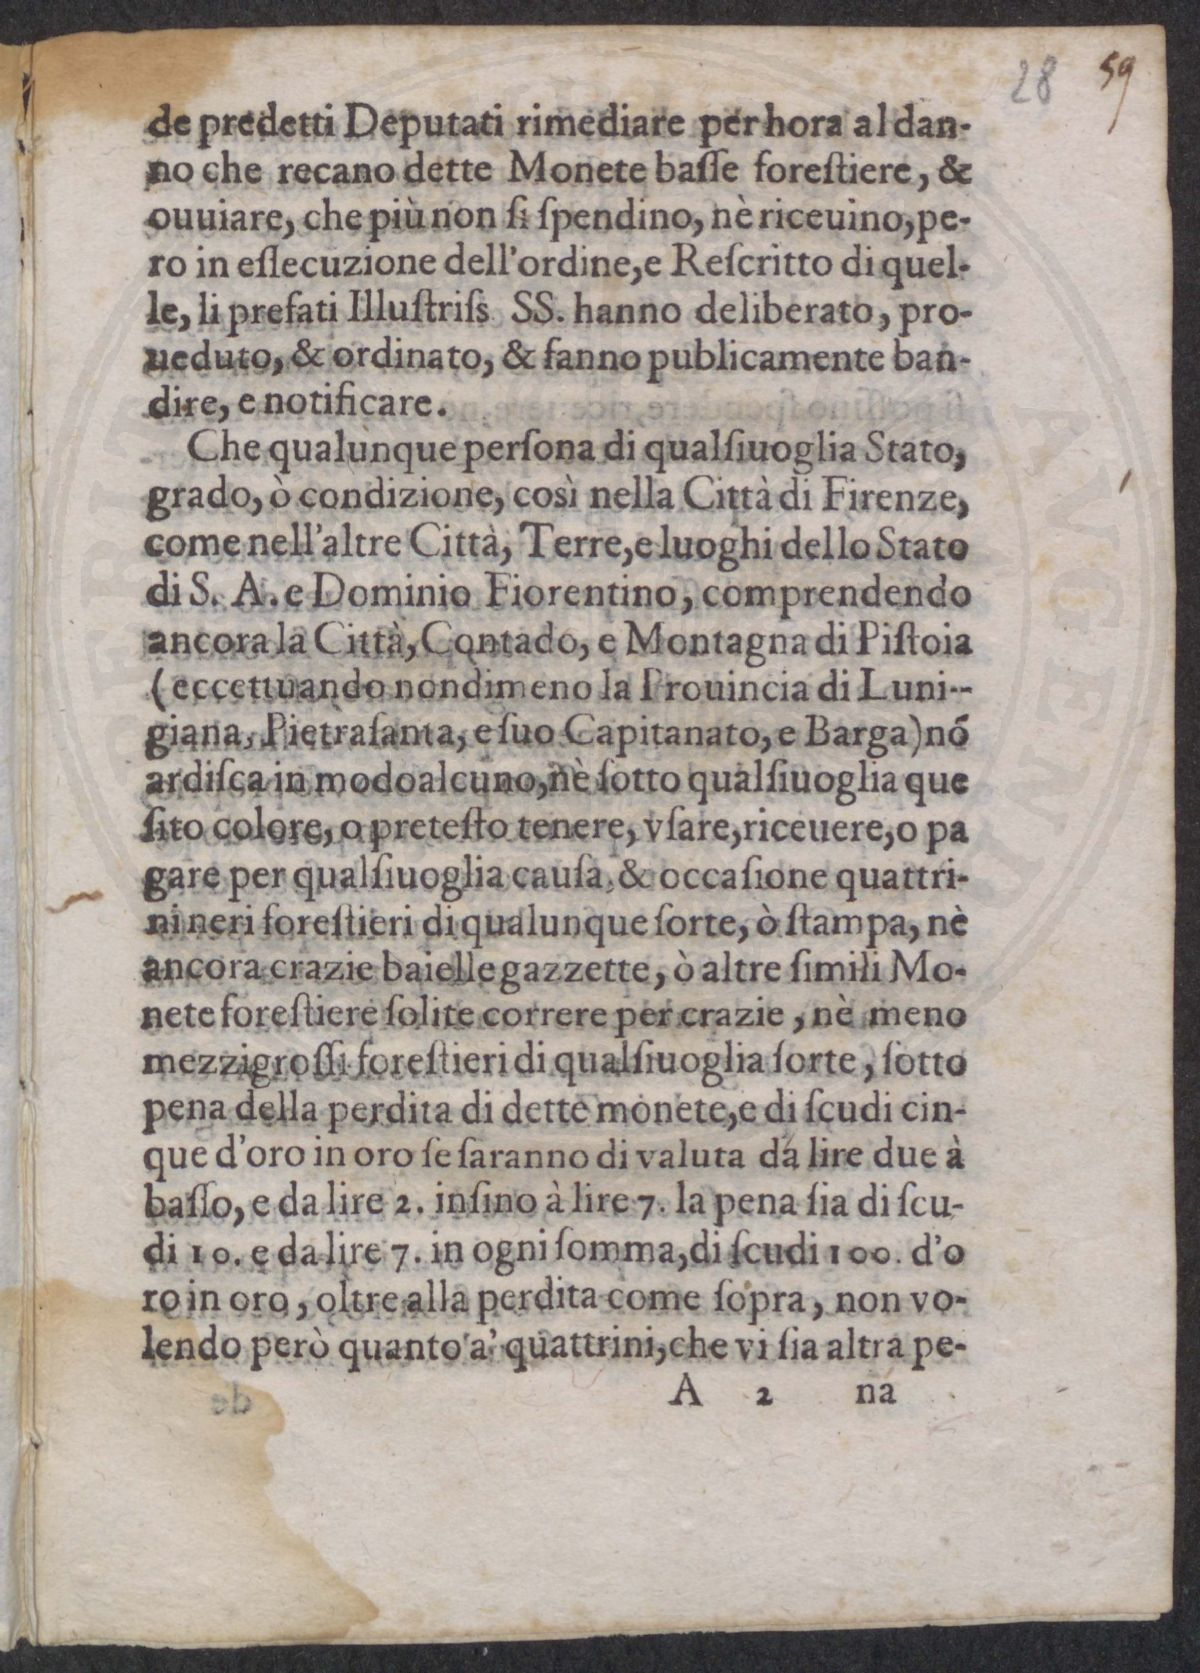 28 59
de predetti Deputati rimediare per hora al dan-
no che recano dette Monete basse forestiere, &
ouuiare, che più non si spendino, nè riceuino, pe-
ro in essecuzione dell'ordine, e Rescritto di quel-
le, li prefati Illustriss SS. hanno deliberato, pro-
ueduto, & ordinato, & fanno publicamente ban-
dire, e notificare.
Che qualunque persona di qualsiuoglia Stato,
grado, ò condizione, così nella Città di Firenze,
come nell'altre Città, Terre, e luoghi dello Stato
di S. A. e Dominio Fiorentino, comprendendo
ancora la Città, Contado, e Montagna di Pistoia
(eccettuando nondimeno la Prouincia di Luni-
giana, Pietrasanta, e suo Capitanato, e Barga) nõ
ardisca in modo alcuno, nè sotto qualsiuoglia que
sito colore, o pretesto tenere, vsare, riceuere, o pa
gare per qualsiuoglia causa, & occasione quattri-
ni neri forestieri di qualunque sorte, ò stampa, nè
ancora crazie baielle gazzette, ò altre simili Mo-
nete forestiere solite correre per crazie, nè meno
mezzi grossi forestieri di qualsiuoglia sorte, sotto
pena della perdita di dette monete, e di scudi cin-
que d'oro in oro se saranno di valuta da lire due à
basso, e da lire 2. insino à lire 7. la pena sia di scu-
di 10. e da lire 7. in ogni somma, di scudi 100. d'o
ro in oro, oltre alla perdita come sopra, non vo-
lendo però quanto a' quattrini, che vi sia altra pe-
A 2 na